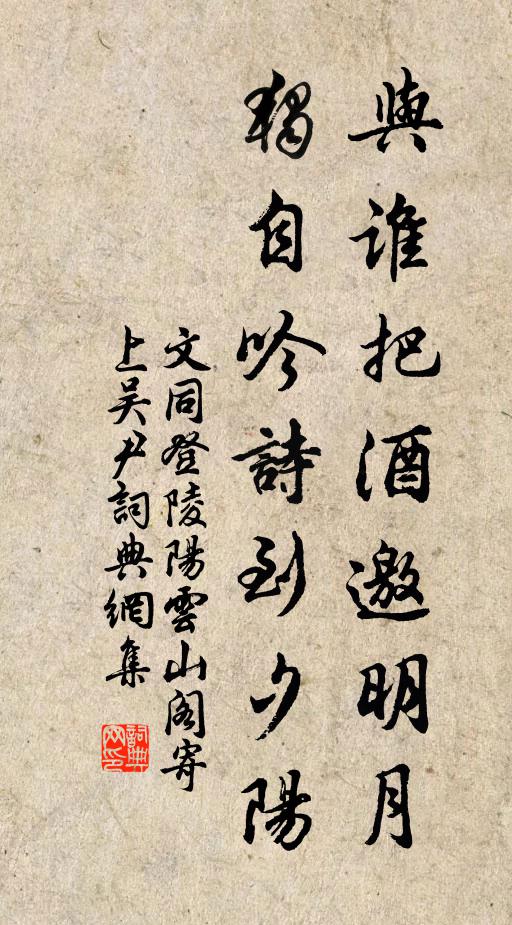 與誰把酒邀明月
獨自吟詩到夕陽
文同登陵陽雲山閣寄
上吴尹詞典網集
詞典
网印